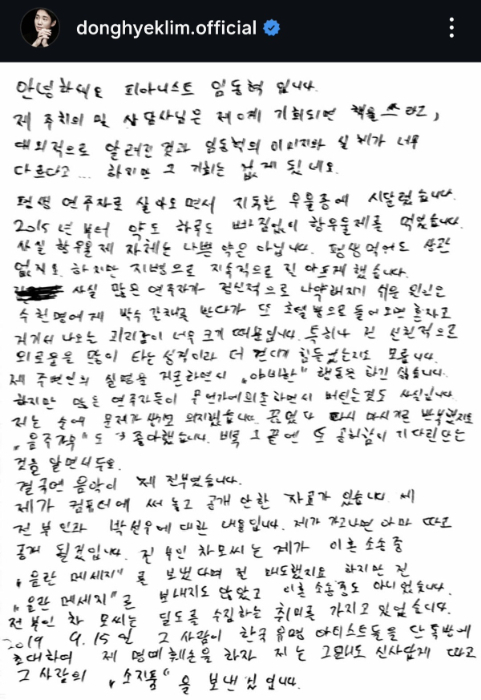 donghyeklim.official
안녕하세요 피아니스트 임동혁 입니다.
제 주치의 및 상담사님은 제게 기회되면 책을 쓰라고,
대외적으로 알려진것과 임동혁의 이미지와 실체가 너무
다르다고... 하지만 그 기회는 없게 됬네요.
평생 연주자로 살아오면서 지독한 우울증에 시달렸습니다.
2015년부터 약도 하루도 빠짐없이 항우울제를 먹었습니다.
사실 항우울제 자체는 나쁜약은 아닙니다. 평생먹어도 상관
없지요. 하지만 지병으로 지속적으로 전 아프게 했습니다.
사실 많은 연주자가 정신적으로 나약해지기 쉬운 원인은
수천명에게 박수 갈채를 받다가 또 호텔방으로 들어오면 혼자고
거기서 나오는 괴리감이 너무 크기 때문입니다. 특히나 전 선천적으로
외로움을 많이 타는 성격이라 더 견디기 힘들었는지도 모릅니다.
제 주변인의 실명을 거론하면서 "야비한" 행동은 하기 싫습니다.
하지만 많은 연주자들이 무언가에 의존하면서 버틴는것도 사실입니다.
저는 술에 문제가 의지했습니다. 끊었다 다시 마시기를 반복했지요
도 좋아했습니다. 비록 그 끝엔 또 공허함이 기다린다는
것을 알면서두요.
결국엔 음악이 제 전부였습니다.
제가 컴퓨터에 써 놓고 공개 안한 자료가 있습니다. 제
전 부인과 박선우에 대한 내용입니다. 제가 가고나면 아마 따로
공개 될것입니다. 전 부인 차모씨는 제가 이혼 소송중
"음란 메세지"를 보냈다며 절 매도했지요 하지만 전
"음란 메세지"를 보내지도 않았고 이혼 소송중도 아니었습니다.
전부인 차 모씨는 딜도를 수집하는 취미를 가지고 있었습니다.
2019 9.15일 그 사람이 한국 유명 아티스트들을 단톡방에
초대하여 제 명예훼손을 하자 저는 그래도 신사답게 따로
그 사람의 "소지품"을 보낸겁니다.